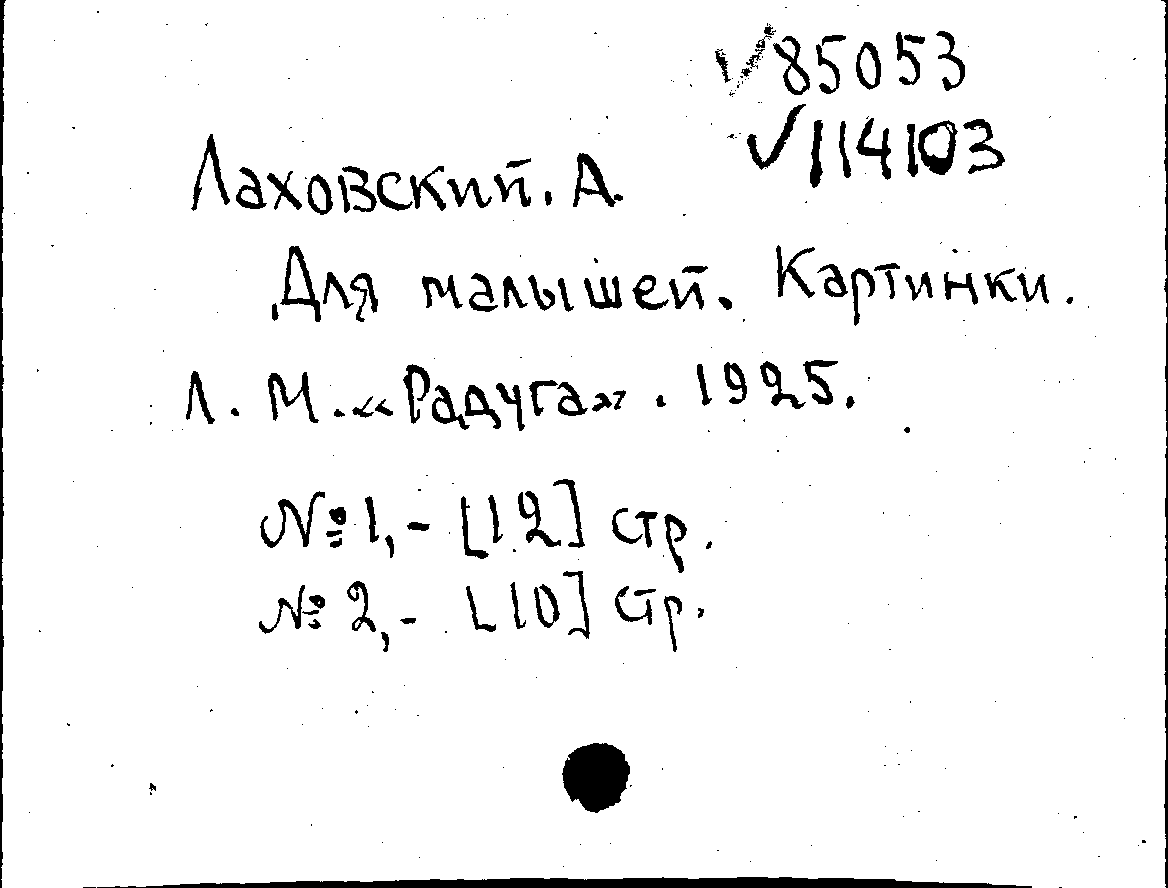 √85053
√114103
Лаховский. А.
Для малышей. Картинки.
Л. М. «Радуга». 1925.
№ 1, - [12] стр.
№ 2, - [10] стр.